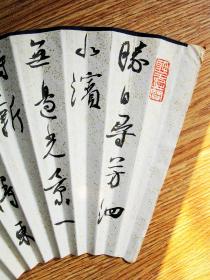 勝日尋芳泗
水濱
無邊光景一
時新
東